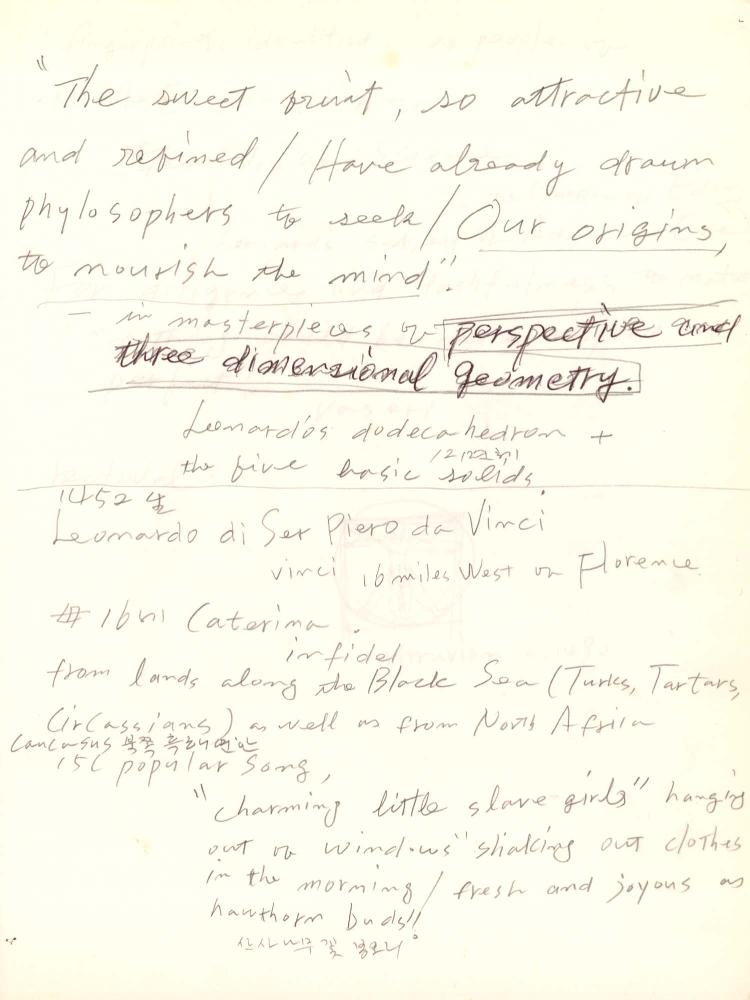 "The sweet fruit, so attractive
and refined / Have already drawn
phylosophers to seek / Our origins,
to nourish the mind".
— in masterpieces of perspective and
three dimensional geometry.
Leonardo's dodecahedron +
12
the five basic solids.
1452 生
Leonardo di Ser Piero da Vinci
Vinci 16 miles West of Florence
母 16세 Caterina.
infidel
from lands along the Black Sea (Turks, Tartars,
Circassians) as well as from North Africa
Caucasus 북쪽 흑해연안
15C popular song,
"charming little slave girls" hanging
out of windows "shaking out clothes
in the morning / fresh and joyous as
hawthorn buds"
산사나무 꽃 봉오리